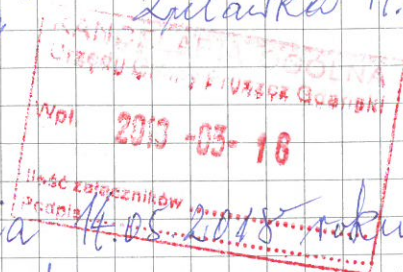 KANCELARIA OGÓLNA
Urzędu Gminy Pruszcz Gdański
Wpł.
2018 -05- 16
Ilość załączników
Podpis
a 14.05.2018 roku